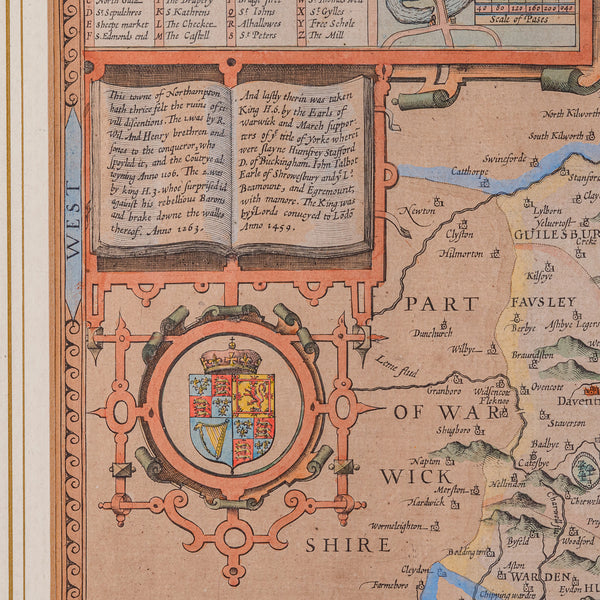 C North Gate I The Drapery Q Bridge street V St Thoms
D St Sepulchres K S Kathrens R St Iohns W St Gyles
E Sheepe market L The Checker S Alhallowes Y Free Schole
F St Edmonds end M The Castell St Peters Z Mill
40 80 120 160 200 240
Scale of Pases
This towne of Northampton
hath thrice felt the ruins of ci-
vill discentions. The 1. was by R.
Wil. And Henry brethren and
sones to the conqueror, who
spoyled it, and the Coutrye ad-
ioyning Anno 1106. The 2. was
by king H. 3. whoe surprised it
against his rebellious Barons
and brake downe the walles
thereof. Anno 1263.
And lastly therin was taken
King H. 6. by the Earls of
Warwick and March suppor-
ters of ye title of Yorke where
were slayne Humfrey Stafford
D. of Buckingham. Iohn Talbot
Earle of Shrewsbury and ye L.
Beamount, and Egremount,
with manore. The King was
by ye Lords conueyed to Lodo
Anno 1459.
WEST
North Kilworth
South Kilworth
Swineforde
Catthorpe
Stanford
Newton
Lylborn
Clay
Yelvertoft
Clyston
GUILESBUR
Creke
Hilmorton
Kilsbye
PART
FAUSLEY
Dunchurch
Berbye
Ashbye Legers
Wilbye
Braundston
Leme flud
Granboro
Widsencote
Ovencote
Flekno
Davent
OF WAR
Staverton
Shugboro
Badbye
Napton
Catesbye
WICK
Merston
Hellindon
Hardwick
Charwell
Wormeleighton
Byfeld
Woodford
SHIRE
Boddington
Aston
Cleydon
WARDEN
Farneboro
Eydon
HU
Chipping warden